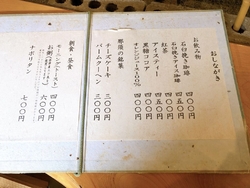 おしながき
お飲み物
石臼挽き珈琲 四〇〇円
石臼挽きアイス珈琲 四五〇円
紅茶 四〇〇円
アイスティー 四五〇円
黒糖ココア 四五〇円
オレンジジュース100% 四〇〇円
那須の銘菓
チーズケーキ 三〇〇円
バームクーヘン 三〇〇円
朝食・昼食
モーニングトースト 四〇〇円
お粥 六〇〇円
ナポリタン 七〇〇円